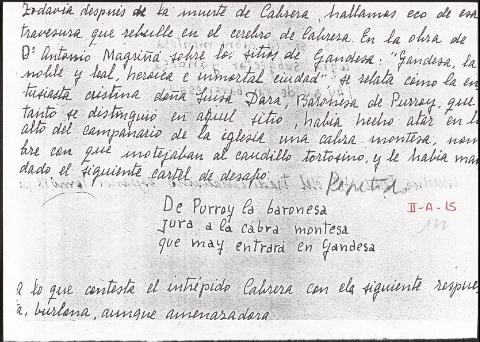 Todavía después de la muerte de Cabrera, hallamos eco de esa
travesura que rebulle en el cerebro de Cabrera. En la obra de
Dº Antonio Magriñá, sobre los sitios de Gandesa: "Gandesa, la
noble y leal, heroica e inmortal ciudad" se relata como la en
tusiasta cristina doña Luisa Dara, Baronesa de Purroy, que
tanto se distinguió en aquel sitio, había hecho atar en lo
alto del campanario de la iglesia una cabra montesa, nom
bre con que motejaban al caudillo tortosino, y le había man
dado el siguiente cartel de desafío:
De Purroy la baronesa
jura a la cabra montesa
que may entrará en Gandesa
II-A-15
a lo que contesta el intrépido Cabrera con ela siguiente respues
a, burlona, aunque amenazadora